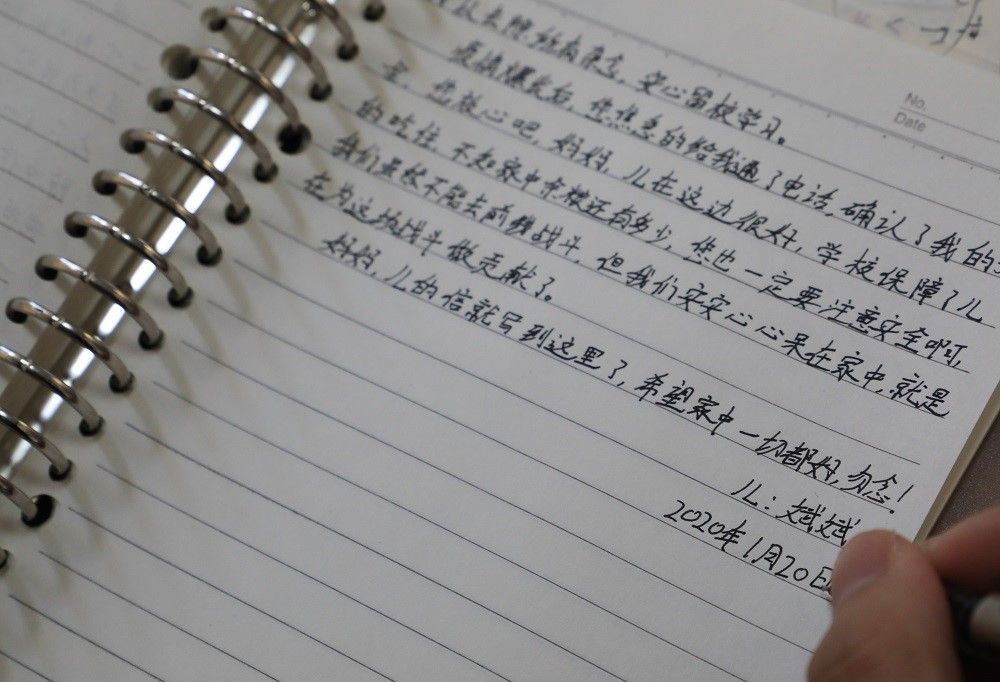 No.
Date
安心留校学习。
疫情爆发后，您焦急的给我通了电话，确认了我的
全，您放心吧，妈妈，儿在这边很好，学校保障了儿
的吃住，不知家中余粮还有多少，您也一定要注意安全啊，
我们虽然不能去前线战斗，但我们安安心心呆在家中，就是
在为这场战斗做贡献了。
妈妈，儿的信就写到这里了，希望家中一切都好，勿念！
儿：斌斌
2020年1月20日